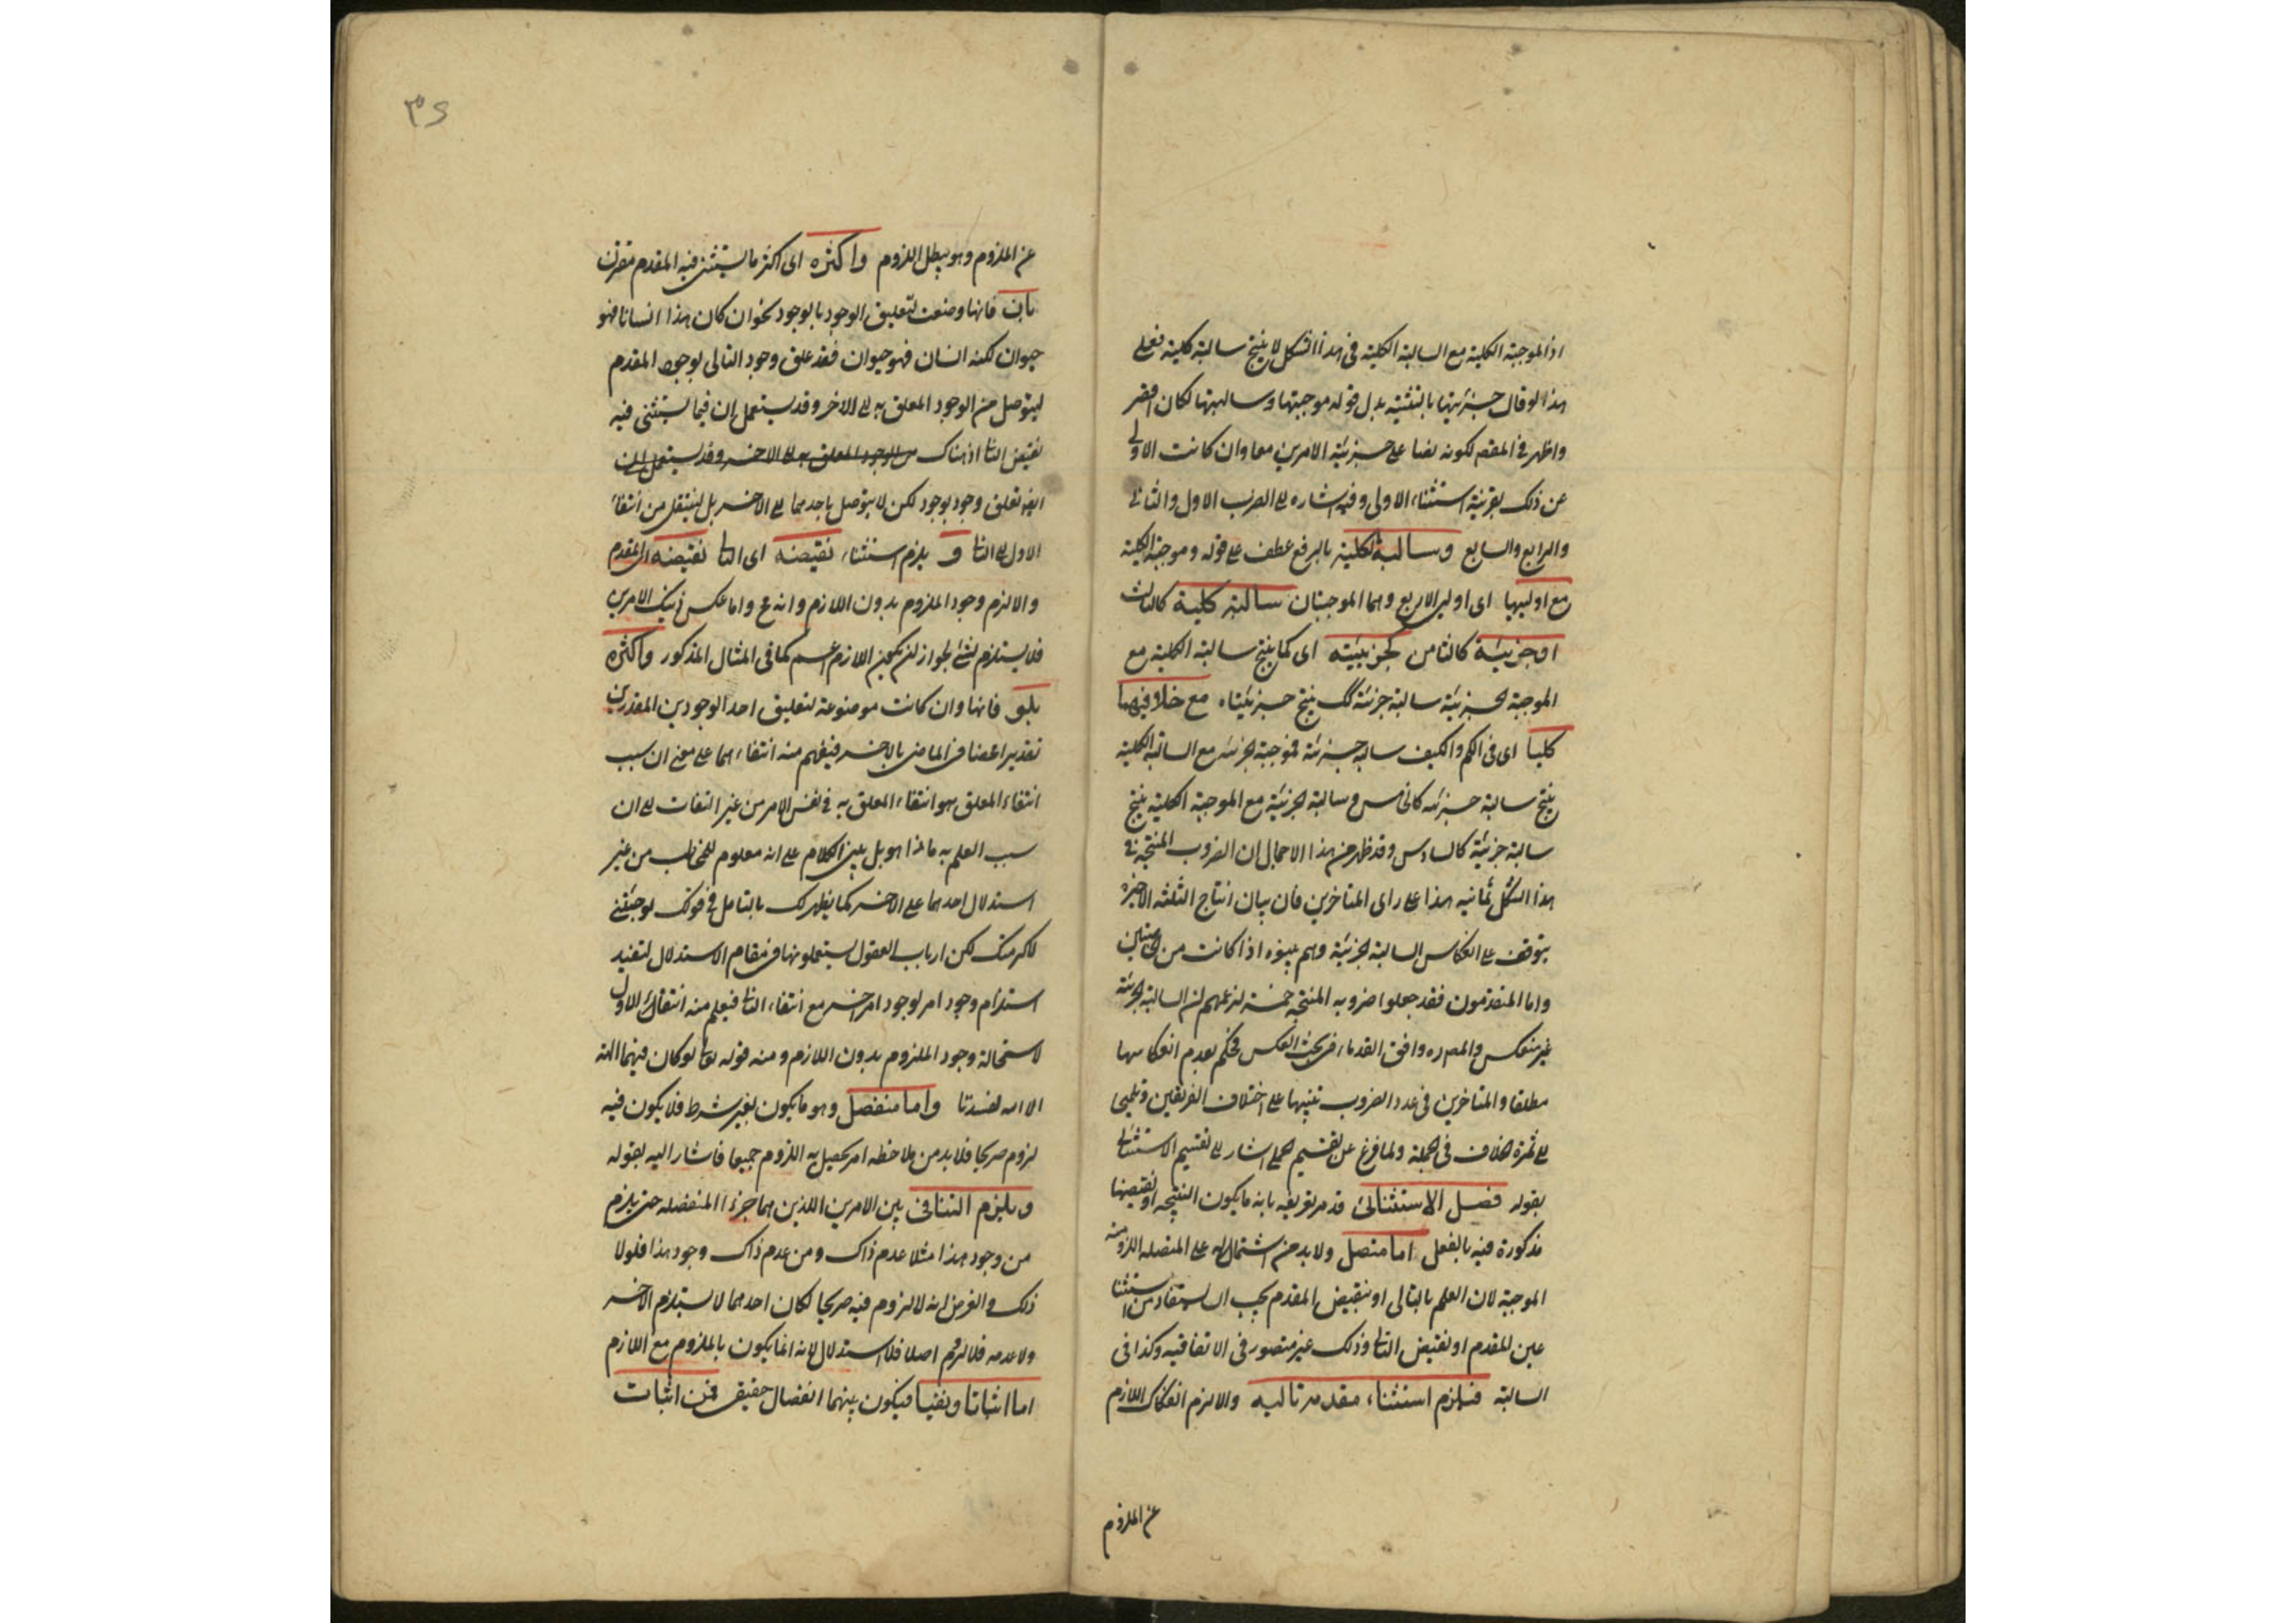 اذ الموجبة الكلية مع السالبة الكلية فى هذا الشكل لا ينتج سالبة كلية فعلى
هذا لو قال جزئيتها بالتثنية بدل قوله موجبتها وسالبتها لكان اخصر
واظهر فى المقصم لكونه نصا على جزئية الامرين معا وان كانت الاولى
عن ذلك بقرينة استثناء الاولى وفيه اشاره الى الضرب الاول والثانى
والرابع والسابع وسالبة الكلية بالرفع عطف على قوله وموجبة الكلية
مع اوليها اى اوليى الاربع وهما الموجبتان سالبة كلية كالثالث
او جزئية كالثامن كجزئيته اى كما ينتج سالبة الكلية مع
الموجبة الجزئية سالبة جزئية كك ينتج جزئيتاه مع خلافيهما
كليا اى فى الكم والكيف سالبه جزئية فموجبة الجزئية مع السالبة الكلية
ينتج سالبة جزئية كالخامس وسالبة الجزئية مع الموجبة الكلية ينتج
سالبة جزئية كالسادس وقد ظهر من هذا الاجمال ان الضروب المنتجة فى
هذا الشكل ثمانيه هذا على راى المتاخرين فان بيان انتاج الثلثه الاخيره
يتوقف على انعكاس السالبة الجزئية وهم بينوه اذا كانت من الخاصتين
واما المتقدمون فقد جعلوا ضروبه المنتجه خمسة لزعمهم ان السالبة الجزئية
غير منعكس والمصره وافق القدماء فى بحث العكس فحكم بعدم انعكاسها
مطلقا والمتاخرين فى عدد الضروب تنبيها على اختلاف الفريقين وتلميحا
الى ثمرة الخلاف فى الجملة ولما فرغ عن تقسيم الحملى اشار الى تقسيم الاستثنائى
بقوله فصل الاستثنائى قد مر تعريفه بانه ما يكون النتيجه او نقيضها
مذكورة فيه بالفعل اما متصل ولا بد من اشتماله على المتصله اللزوميه
الموجبة لان العلم بالتالى او بنقيض المقدم يجب ان يستفاد من استثناء
عين المقدم او نقيض التالى وذلك غير متصور فى الاتفاقيه وكذا فى
السالبة فيلزم استثناء مقدمه تاليه والا لزم انفكاك اللازم
عن الملزوم
٣٤
عن الملزوم وهو يبطل اللزوم واكثره اى اكثر ما يستثنى فيه المقدم مقرن
بان فانها وضعت لتعليق الوجود بالوجود نحو ان كان هذا انسانا فهو
حيوان لكنه انسان فهو حيوان فقد علق وجود التالى بوجود المقدم
ليتوصل من الوجود المعلق به الى الاخر وقد يستعمل ان فيما يستثنى فيه
نقيض التالى اذ هناك من الوجود المعلق به الى الاخر وقد يستعمل ان
ايضا تعلق وجود بوجود لكن لا يتوصل باحدهما الى الاخر بل لينتقل من انتفاء
الاول الى التالى و يلزم استثناء نقيضه اى التالى نقيضه المقدم
والا لزم وجود الملزوم بدون اللازم وانه ع واما عكس ذينك الامرين
فلا يستلزم لشئ لجواز ان يكون اللازم اعم كما فى المثال المذكور واكثره
بلو فانها وان كانت موضوعة لتعليق احد الوجودين المقدرين
تقديرا محضا فى الماضى بالاخر فيفهم منه انتفاءهما على معنى ان سبب
انتفاء المعلق هو انتفاء المعلق به فى نفس الامر من غير التفات الى ان
سبب العلم به ماذا هو بل يبنى الكلام على انه معلوم للمخاطب من غير
استدلال احدهما على الاخر كما يظهر لك بالتامل فى قولك لو جئتنى
لاكرمتك لكن ارباب العقول يستعملونها فى مقام الاستدلال لتفيد
استلزام وجود امر لوجود امر اخر مع انتفاء التالى فيعلم منه انتفاء الاول
لاستحالة وجود الملزوم بدون اللازم ومنه قوله تعالى لو كان فيهما الهة
الا الله لفسدتا واما منفصل وهو ما يكون بغير شرط فلا يكون فيه
لزوم صريحا فلا بد من ملاحظه امر يحصل به اللزوم جميعا فاشار اليه بقوله
ويلزم التنافى بين الامرين اللذين هما جزءا المنفصله حتى يلزم
من وجود هذا مثلا عدم ذاك ومن عدم ذاك وجود هذا فلولا
ذلك والفرض انه لا لزوم فيه صريحا لكان احدهما لا يستلزم الاخر
ولا عدمه فلا لزوم اصلا فلا استدلال لانه انما يكون بالملزوم مع اللازم
اما اثباتا ونفيا فيكون بينهما انفصال حقيقى فمن اثبات